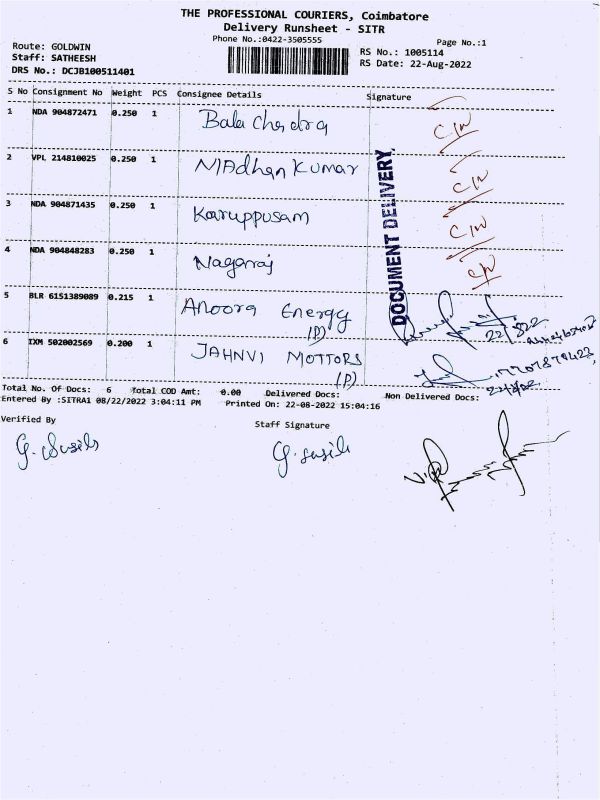 THE PROFESSIONAL COURIERS, Coimbatore
Delivery Runsheet - SITR
Phone No.:0422-3505555
Page No.:1
Route: GOLDWIN
Staff: SATHEESH
DRS No.: DCJB100511401
RS No.: 1005114
RS Date: 22-Aug-2022
S No Consignment No Weight PCS Consignee Details Signature
1 NDA 904872471 0.250 1 Bala Chandra C/N
2 VPL 214810025 0.250 1 MAdhan Kumar C/N
3 NDA 904871435 0.250 1 Karuppusam C/N
4 NDA 904848283 0.250 1 Nagaraj C/N
DOCUMENT DELIVERY
5 BLR 6151389089 0.215 1 Anoora Energy (P)
6 IXM 502002569 0.200 1 JAHNVI MOTTORS (P)
Total No. Of Docs: 6 Total COD Amt: 0.00 Delivered Docs: Non Delivered Docs:
Entered By :SITRA1 08/22/2022 3:04:11 PM Printed On: 22-08-2022 15:04:16
Verified By
Staff Signature
G. Susila
G. Susila